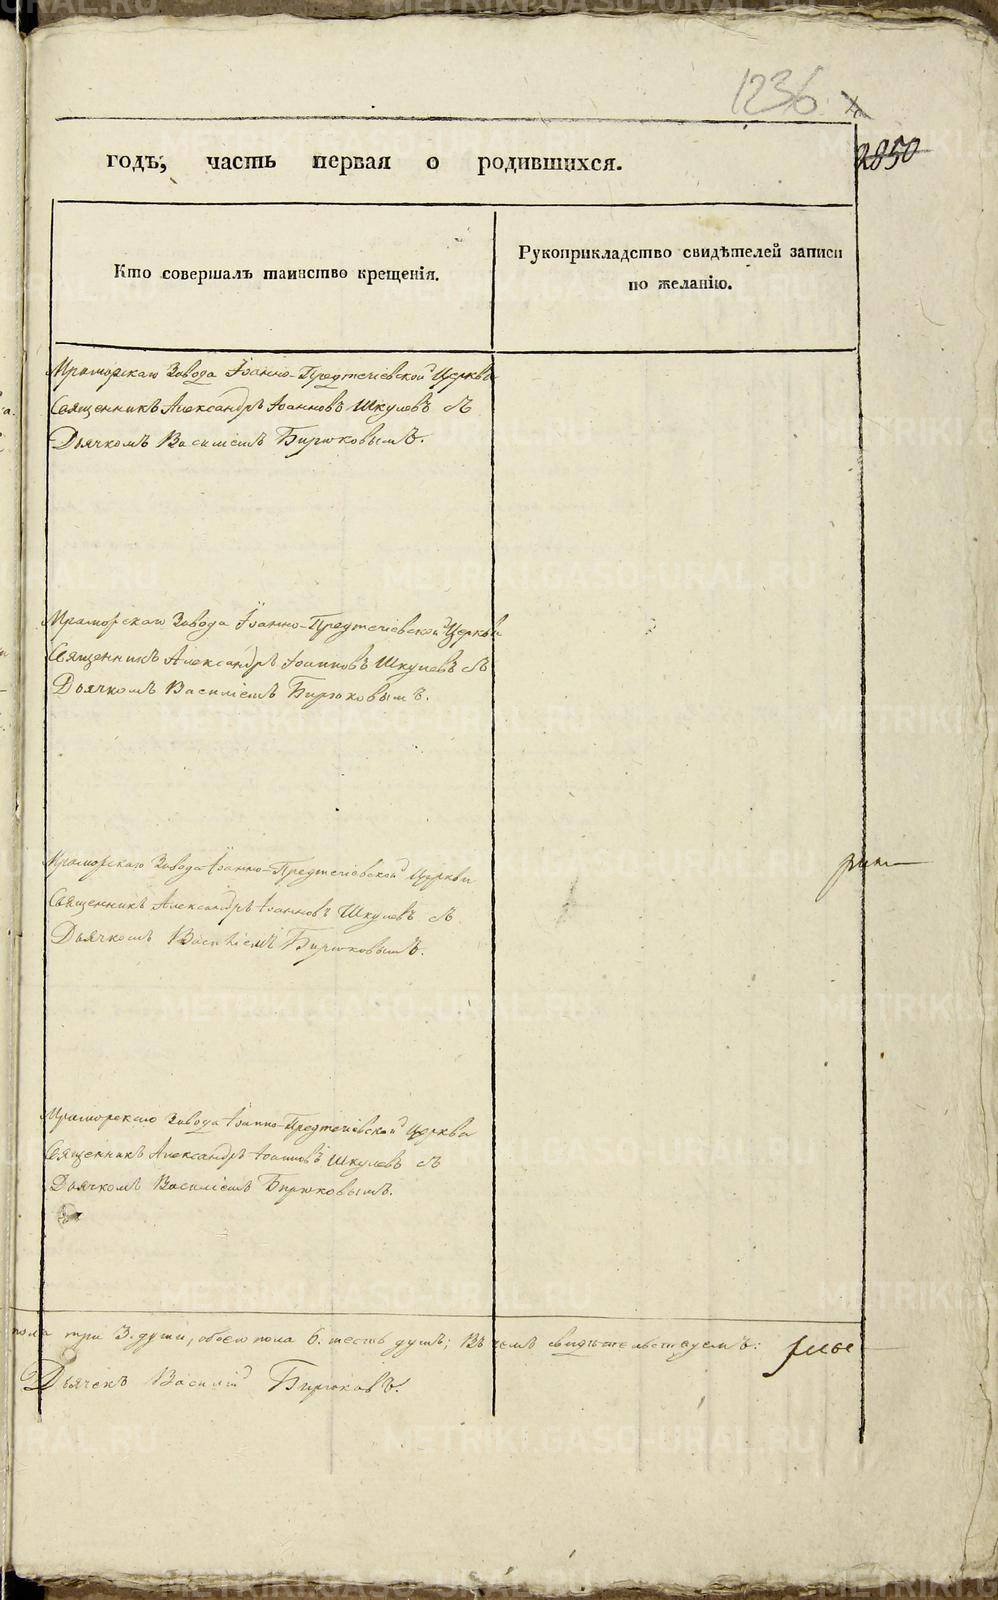 1236
2850
годъ, часть первая о родившихся.
Кто совершалъ таинство крещенія.
Рукоприкладство свидѣтелей записи
по желанію.
Мраморскаго Завода Іоанно-Предтечіевской Церкви
Священникъ Александръ Іоанновъ Шкулевъ съ
Дьячкомъ Василіемъ Бирюковымъ.
Мраморскаго Завода Іоанно-Предтечіевской Церкви
Священникъ Александръ Іоанновъ Шкулевъ съ
Дьячкомъ Василіемъ Бирюковымъ.
Мраморскаго Завода Іоанно-Предтечіевской Церкви
Священникъ Александръ Іоанновъ Шкулевъ съ
Дьячкомъ Василіемъ Бирюковымъ.
Мраморскаго Завода Іоанно-Предтечіевской Церкви
Священникъ Александръ Іоанновъ Шкулевъ съ
Дьячкомъ Василіемъ Бирюковымъ.
пола три 3. души, обоего пола 6. шесть душъ; въ чемъ свидѣтельствуемъ:
Дьячекъ Василій Бирюковъ.
METRIKI.GASO-URAL.RU